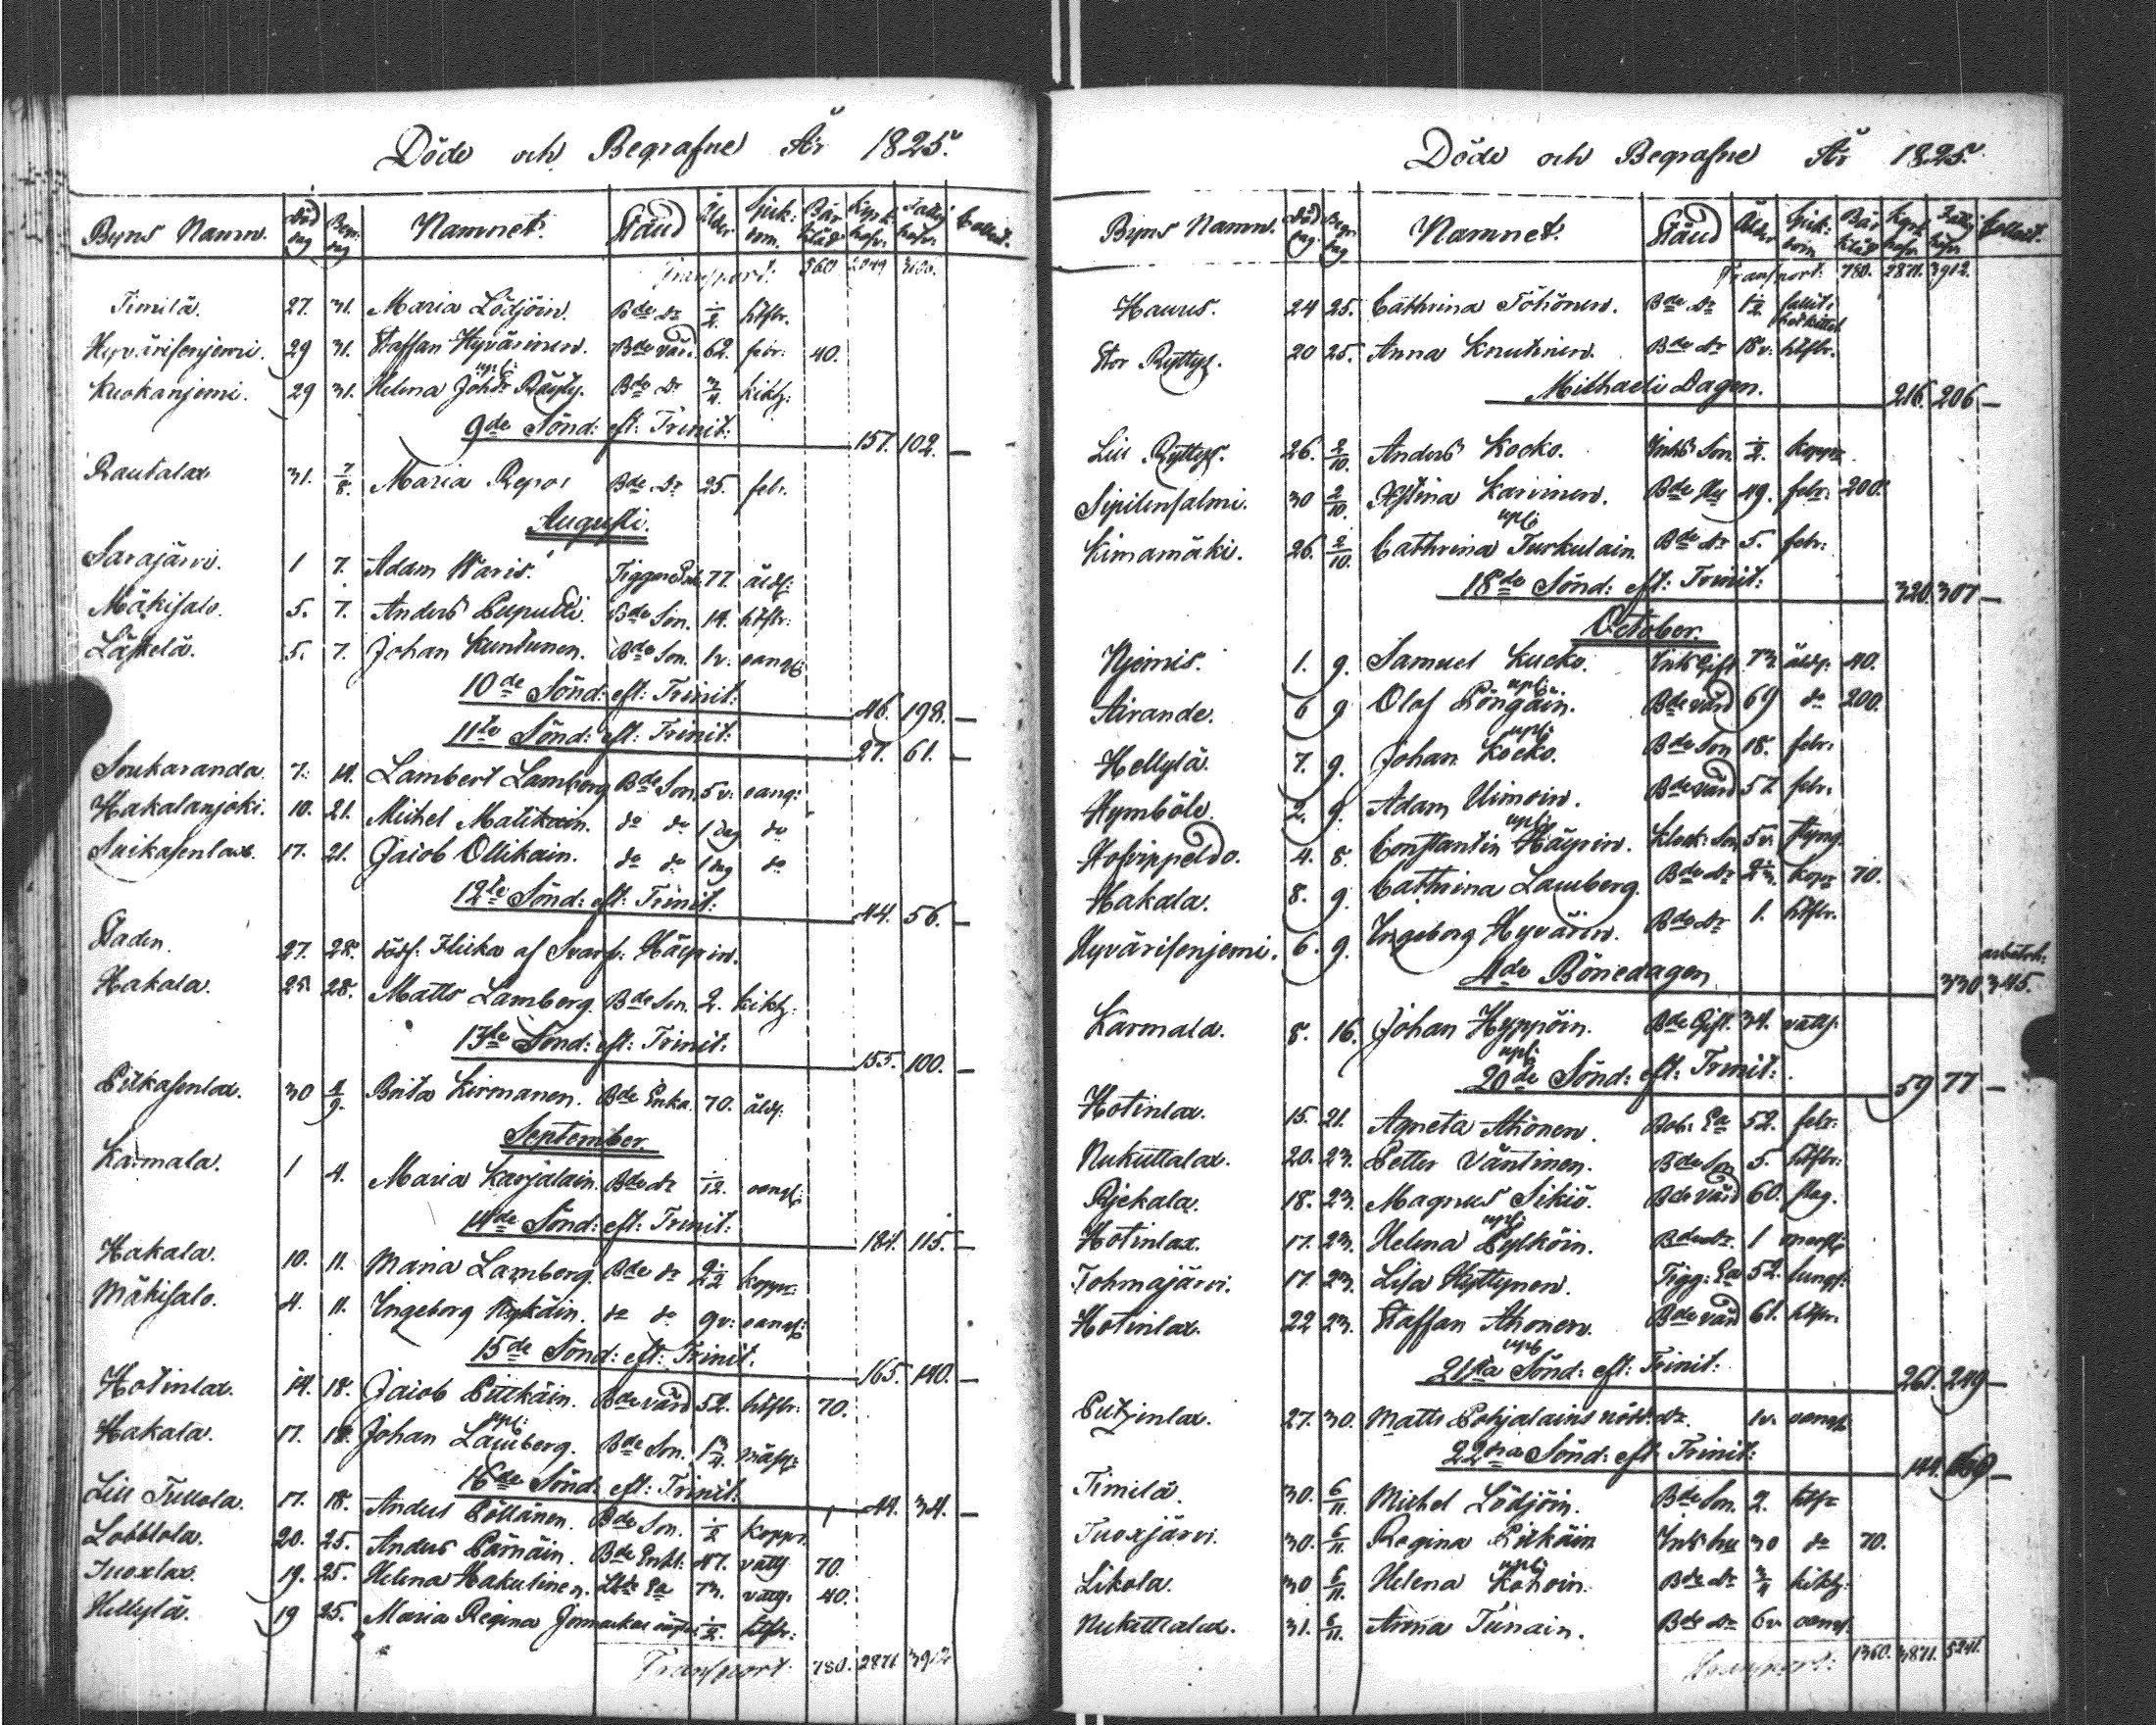 Döde och Begrafne År 1825.
Byns Namn. Död dag Begr. dag Namnet. Stånd Ålder Sjukdom. Bår kläd Kyrk. håfv. Fattig håfv. Collect.
Transport. 560 2049
Timilä. 27. 31. Maria Lödjöin. Bde Dr ½. hitsfbr.
Hyvärisenjemi. 29 31. Staffan Hyvärinen. Bde värd 62. febr: 40.
Kuokanjemi. 29 31. Helena Johdr Räyty. Bde Dr ¾. kikh:
9de Sönd: eft: Trinit: 157. 102. —
Rautalax 31. 7/8. Maria Repo Bde Dr 25. febr.
Augusti.
Sarajärvi. 1 7. Adam Waris. Tiggare 77. åldf:
Mäkisalo. 5. 7. Anders Puputti. Bde Son. 14. hitsfbr:
Läskelä. 5. 7. Johan Kuntunen. Bde Son. 1v. oangf:
10de Sönd: eft: Trinit: 46. 198. —
11te Sönd: eft: Trinit: 27. 61. —
Soukaranda. 7. 14. Lambert Lamberg Bde Son. 5v. oang:
Hakalanjoki. 10. 21. Michel Matikain. do do 1 dag do
Suikasenlax. 17. 21. Jacob Ollikain. do do 1 dag do
12te Sönd: eft: Trinit: 44. 56. —
Staden. 27. 28. dödf: Flicka af Svarf: Häyrin.
Hakala. 25 28. Matts Lamberg. Bde Son. 2. kikh:
13de Sönd: eft: Trinit: 155. 100. —
Pitkasenlax. 30 4/9. Brita Kirmanen. Bde Enka. 70. åldf:
September.
Karmala. 1 4. Maria Karjalain. Bde dr 1/12. oangf:
14de Sönd: eft: Trinit: 184. 115. —
Hakala. 10. 11. Maria Lamberg. Bde dr 2½ koppr:
Mäkisalo. 4. 11. Ingeborg Nykäin. do do 9v: oangf:
15de Sönd: eft: Trinit. 165. 140. —
Hotinlax. 14. 18. Jacob Pitkäin. Bde värd 52. hitsfbr: 70.
Hakala. 17. 18. Johan Lamberg. Bde Son. 1¾ mäsf:
16de Sönd: eft: Trinit: 44. 34. —
Lill Tullola. 17. 18. Anders Pöllänen. Bde Son. ½ koppr.
Lobblola. 20. 25. Anders Pärnäin. Bde Enkl: 47. vattf 70.
Juoxlax. 19. 25. Helena Hakulinen. Ea 73. vattf: 40.
Hellylä. 19 25. Maria Regina ½. hitsfbr:
Transport: 780. 2871 3912
Döde och Begrafne År 1825.
Byns Namn. Död dag. Begr. dag Namnet. Stånd Ålder Sjukdom Bår kläd Kyrk. håfv. Fattig håfv. Collect.
Transport. 780. 2871. 3912.
Haurus. 24 25. Cathrina Töhönen. Bde Dr 1½
Stor Ryttys. 20 25. Anna Knutinen. Bde dr 18v: hitsfbr.
Michaeli Dagen. 216. 206 —
Lill Ryttys. 26. 2/10. Anders Kocko. Inhs Son. ½. koppr
Sipilensalmi. 30 2/10. Justina Karvinen. Bde Hu 49. febr: 200.
Kimamäki. 26. 2/10. Cathrina Turkulain. Bde dr 5. febr:
18de Sönd: eft: Trinit: 320. 307 —
October.
Njemis. 1. 9. Samuel Kucko. Inhs Gift. 73. åldf: 40.
Airande. 6 9 Olof Pöngäin. Bde värd 69 do 200.
Hellylä. 7. 9. Johan Kocko. Bde Son 18. febr.
Hymböle. 2. 9. Adam Uimoin. Bde värd 57. febr.
Hofsippeldo. 4. 8. Constantin Häyrin. Klock: Son 5v.
Hakala. 8. 9. Cathrina Lamberg. Bde dr kopr 70.
Hyvärisenjemi. 6. 9. Ingeborg Hyvärin. Bde dr 1. hitsfbr.
4de Bönedagen 330 345.
Karmala. 8. 16. Johan Hyppöin. Bde Gift. 34. vattf:
20de Sönd: eft: Trinit: 59 77 —
Hotinlax. 15. 21. Agneta Ahonen. Ea 52. febr:
Nukuttalax. 20. 23. Petter Väntinen. Bde Son 5. hitsfbr:
Rjekala. 18. 23. Magnus Sikiö. Bde värd 60. slag.
Hotinlax. 17. 23. Helena Pylköin. Bde dr. 1 oangf:
Tohmajärvi. 17. 23. Lisa Hyttynen. Tigg: Ea 52. lungf:
Hotinlax. 22 23. Staffan Ahonen. Bde värd 61. hitsfbr.
21sta Sönd: eft: Trinit: 261. 249 —
Putzinlax. 27. 30. Matts Pohjalains nödd: dr. 1v. oangf:
22dra Sönd: eft: Trinit: 144.
Timilä. 30. 6/11. Michel Lödjöin. Bde Son. 2. hitsf
Tuoxjärvi. 30. 6/11. Regina Pitkäin Inhs hu 30 do 70.
Likola. 30 6/11. Helena Kohoin. Bde dr ¾ kikh:
Nukuttalax. 31. 6/11. Anna Tunain. Bde dr 6v oangf.
Transport: 1360. 3871. 5241.